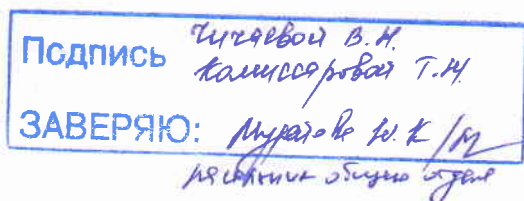 Подпись Чичаевой В.Н.
Комиссаровой Т.Н
ЗАВЕРЯЮ: Муратова Ю.К
начальник общего отдела